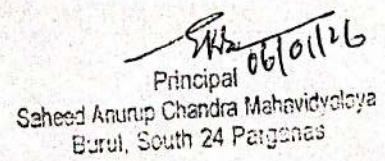 06/01/26
Principal
Saheed Anurup Chandra Mahavidyalaya
Burul, South 24 Parganas